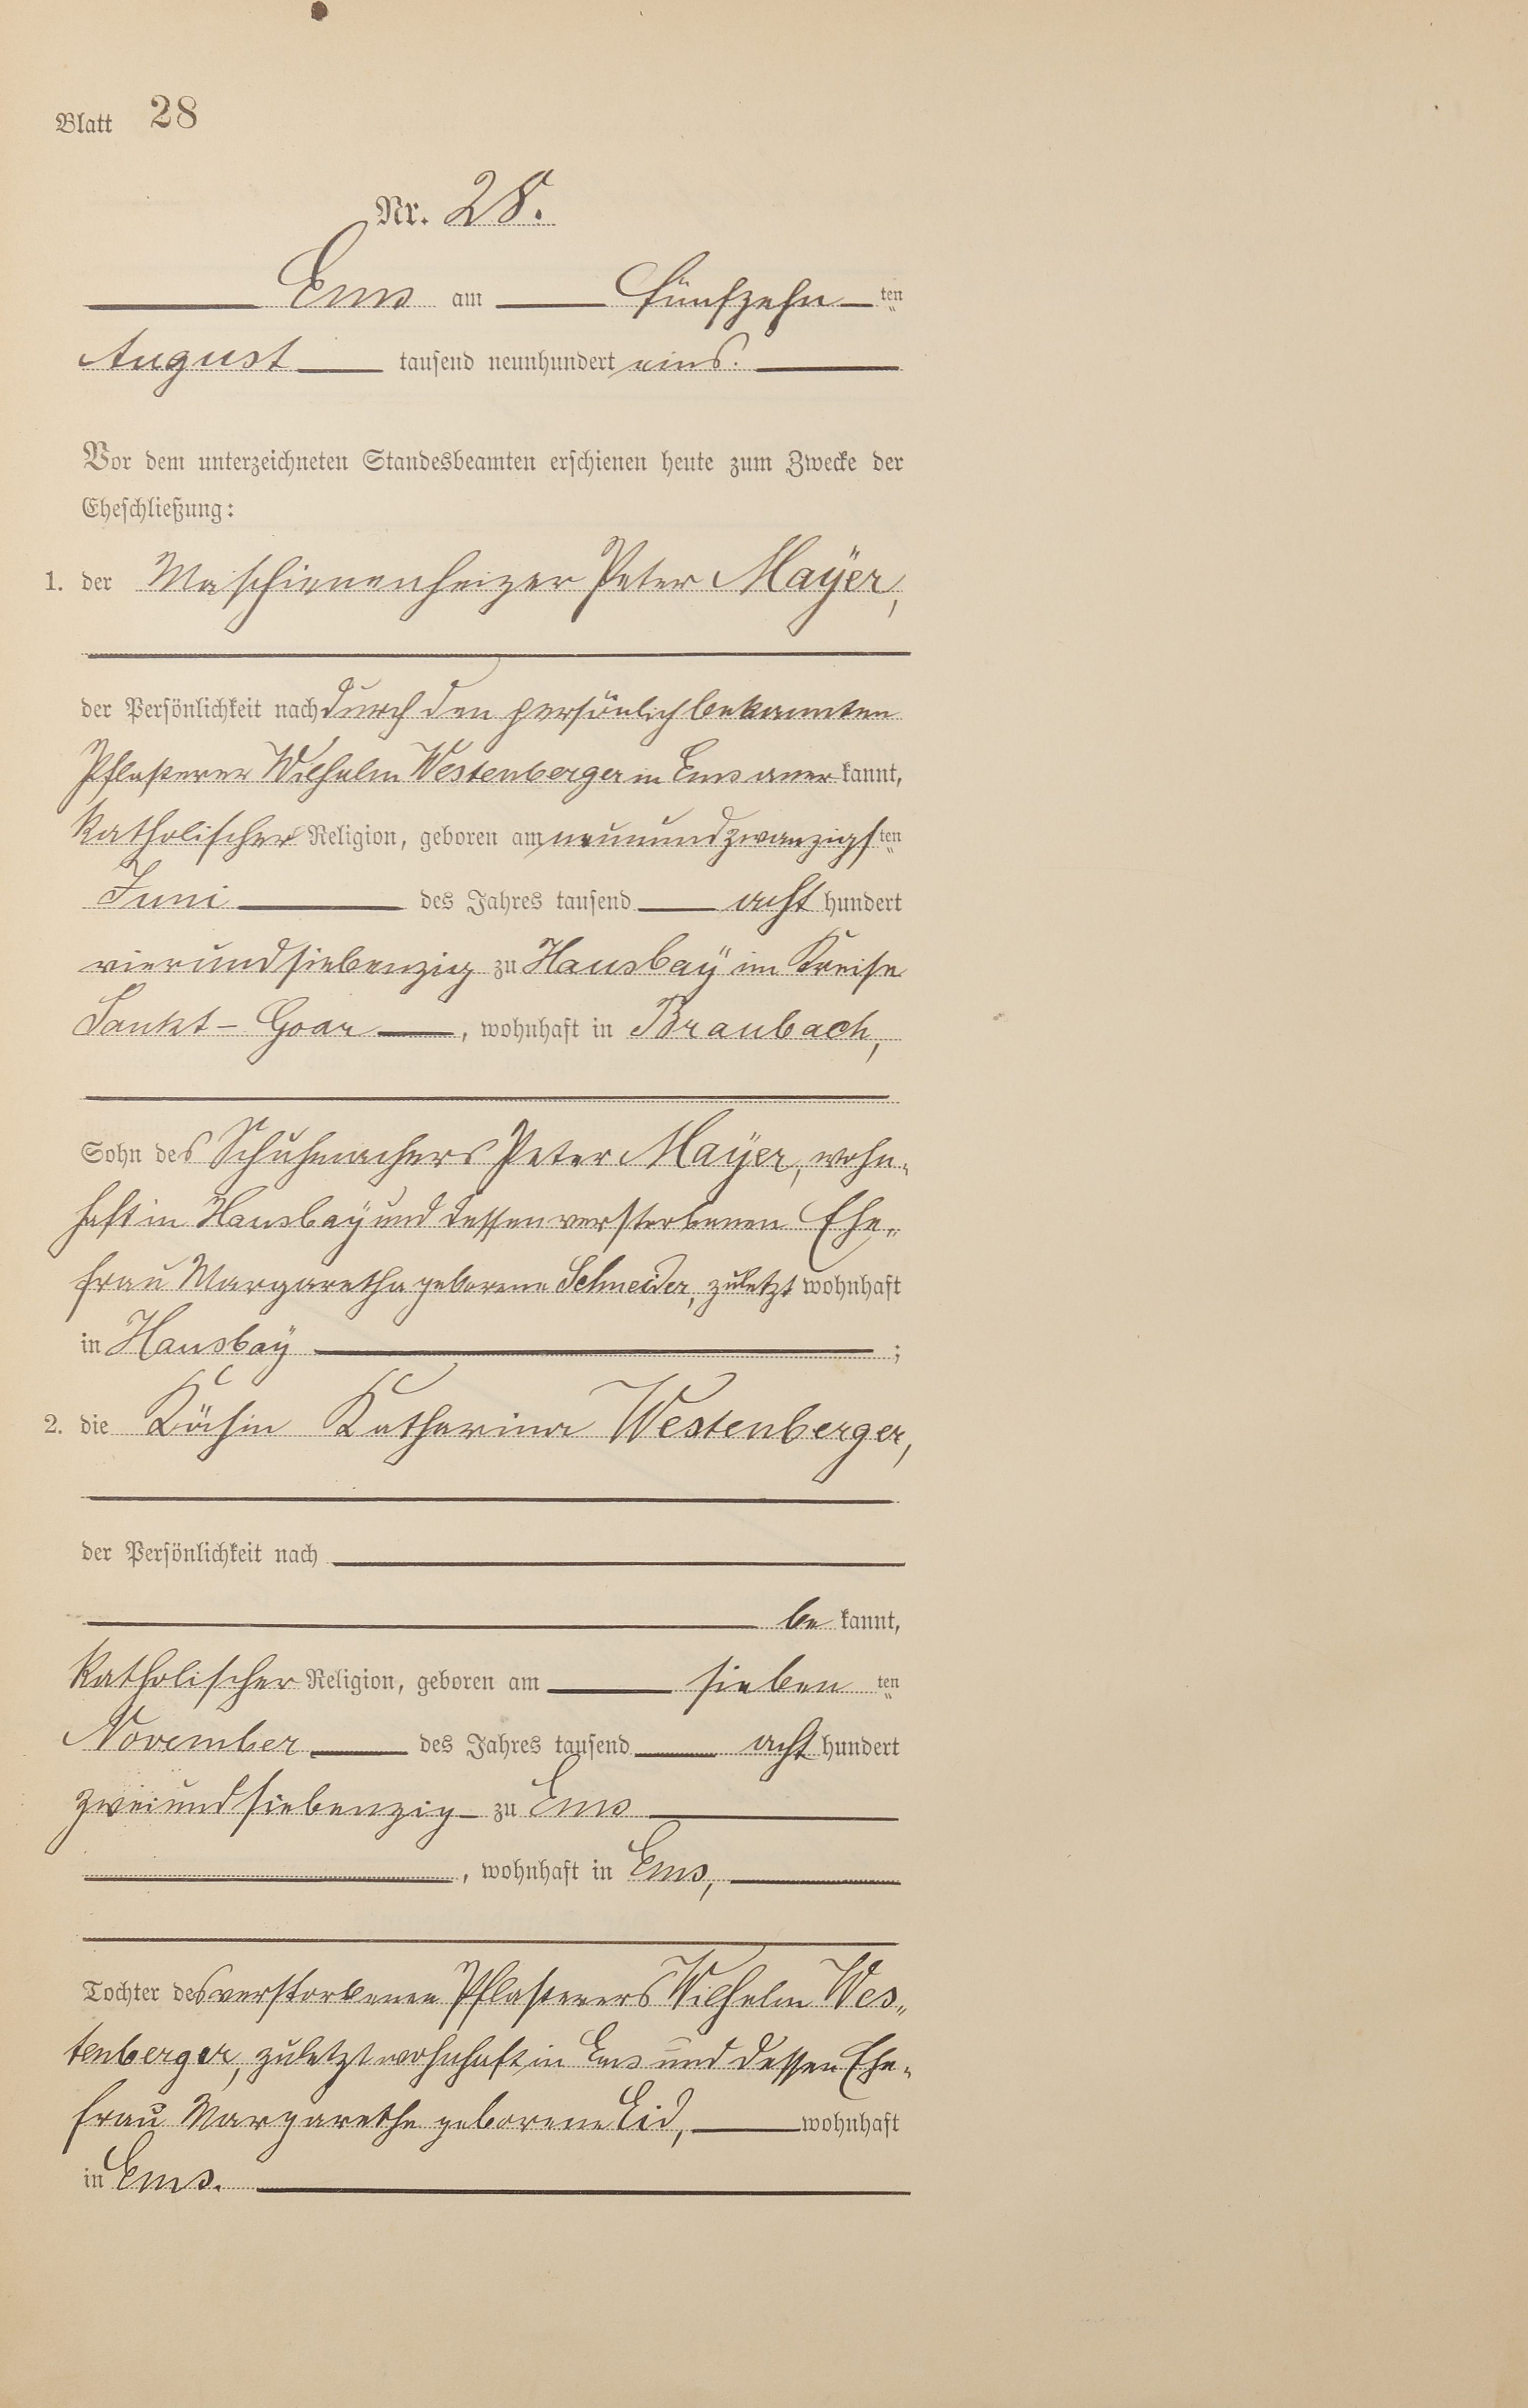 Blatt 28
Nr. 28.
Ems am fünfzehnten
August tausend neunhundert eins.
Vor dem unterzeichneten Standesbeamten erschienen heute zum Zwecke der
Eheschließung:
1. der Maschienenheizer Peter Mayer,
der Persönlichkeit nach durch den persönlich bekannten
Pflasterer Wilhelm Westenberger in Ems anerkannt,
katholischer Religion, geboren am neunundzwanzigsten
Juni des Jahres tausend acht hundert
vierundsiebenzig zu Hausbaÿ im Kreise
Sankt-Goar, wohnhaft in Braubach,
Sohn des Schuhmachers Peter Maÿer, wohn-
haft in Hausbaÿ und dessen verstorbenen Ehe-
frau Margaretha geborene Schneider, zuletzt wohnhaft
in Hausbaÿ ;
2. die Köchin Katharina Westenberger,
der Persönlichkeit nach
bekannt,
katholischer Religion, geboren am siebenten
November des Jahres tausend acht hundert
zweiundsiebenzig zu Ems
, wohnhaft in Ems,
Tochter des verstorbenen Pflasterers Wilhelm Wes-
tenberger, zuletzt wohnhaft in Ems und dessen Ehe-
frau Margarethe geborene Eid, wohnhaft
in Ems.